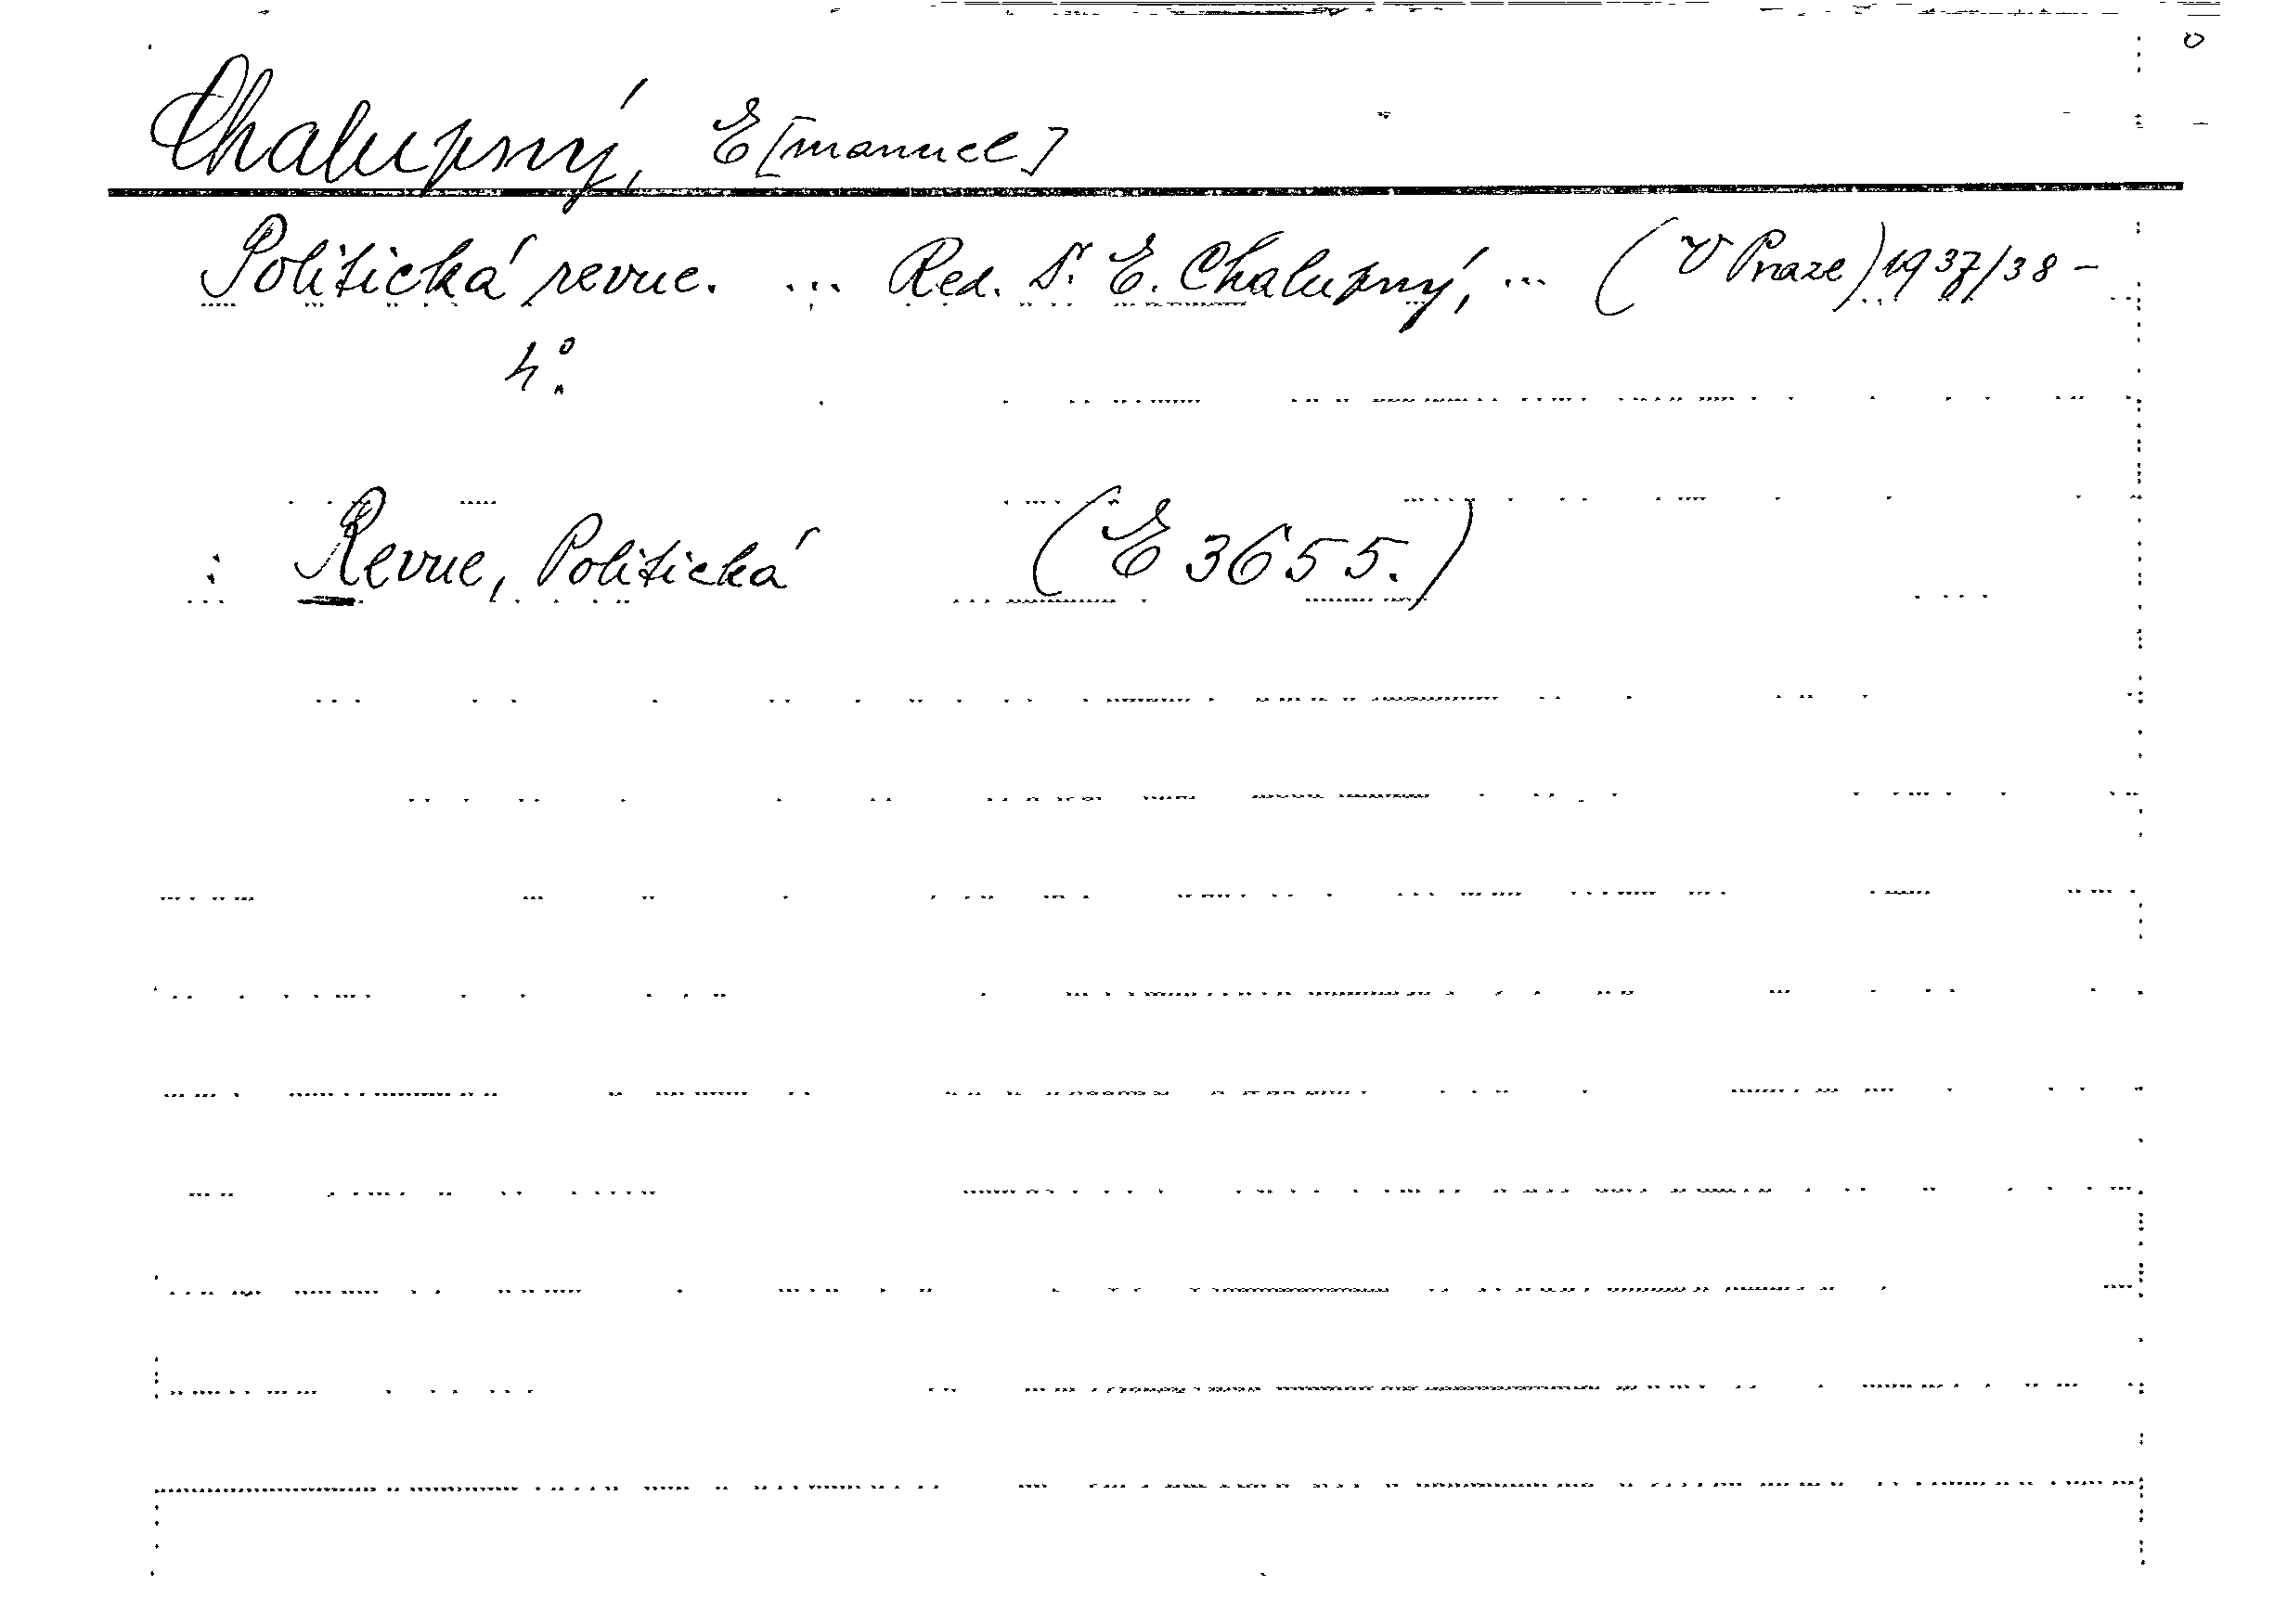 Chalupný, E[manuel]
Politická revue. ... Red. Dr. E. Chalupný, ... (V Praze) 1937/38 -
4°.
: Revue, Politická (E 3655.)